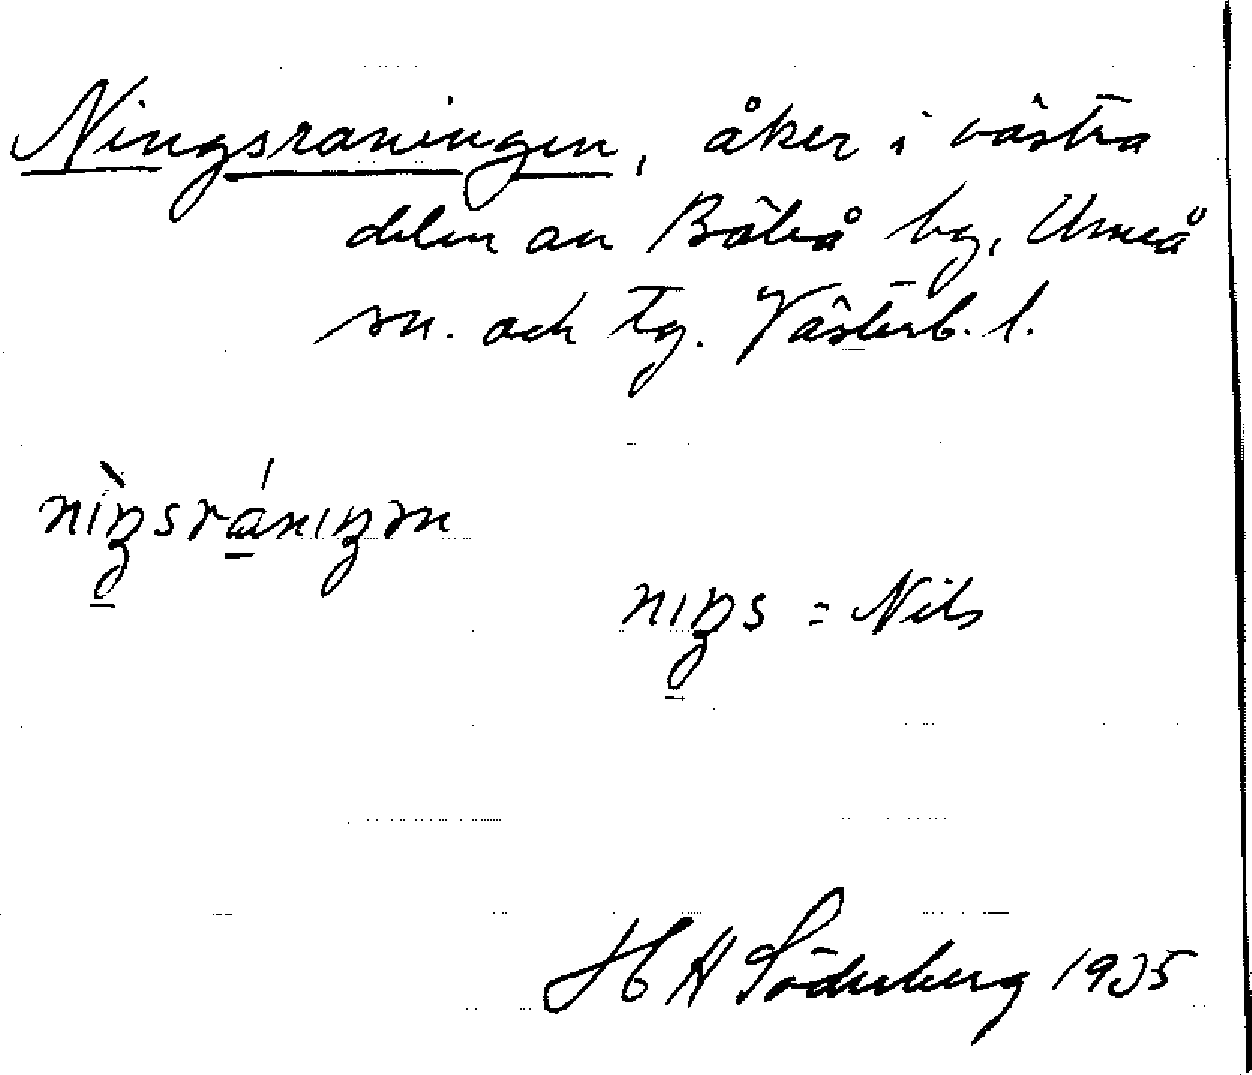 Ningsraningen, åker i västra
delen av Böleå by, Umeå
sn. och tg. Västerb. l.
nìŋsránıŋən
nıŋs = Nils
H A Söderberg 1935